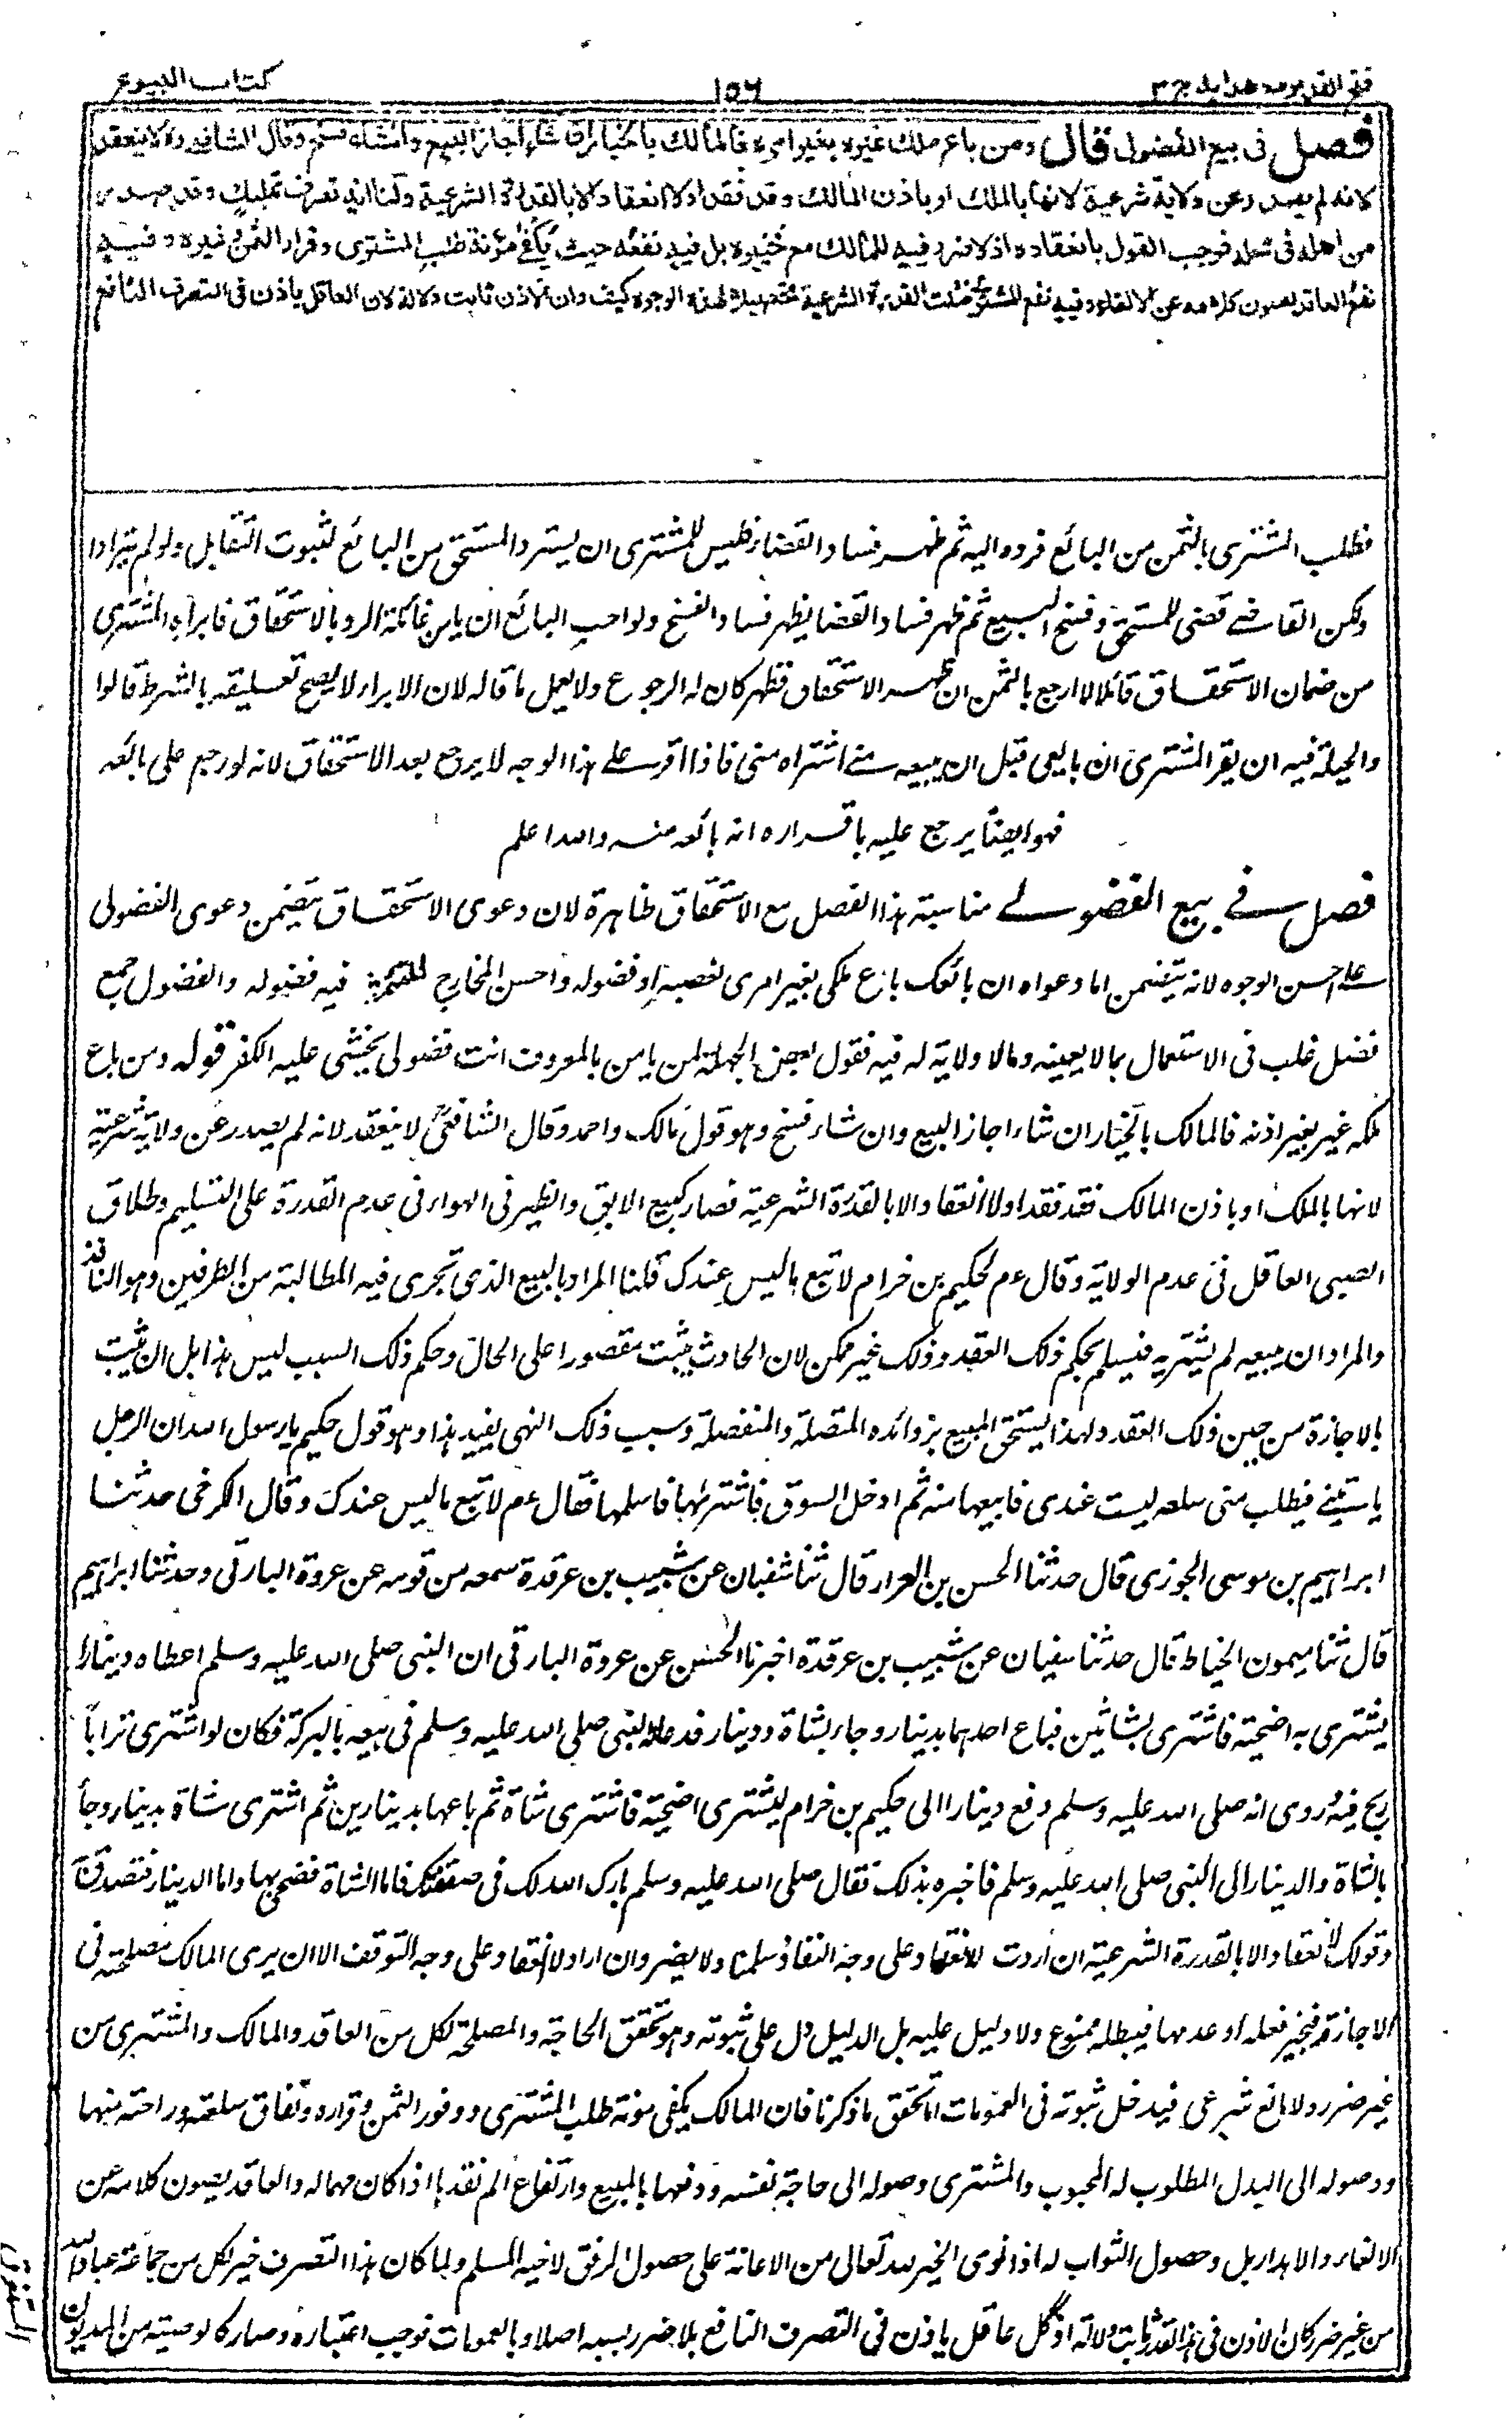 فتح القدير مع هدايه ج ٣
١٥٦
كتاب البيوع
فصل فى بيع الفضولى قال ومن باع ملك غيره بغير امره فالمالك بالخيار ان شاء اجاز البيع وان شاء فسخ وقال الشافعى ره لا ينعقد
لانه لم يصدر عن ولاية شرعية لانها بالملك او باذن المالك وقد فقدا ولا انعقاد الا بالقدرة الشرعية ولنا انه تصرف تمليك وقد صدر
من اهله فى محله فوجب القول بانعقاده اذ لا ضرر فيه للمالك مع تخييره بل فيه نفعه حيث يكفى مؤنة طلب المشترى وقرار الثمن وغيره وفيه
نفع العاقد لصون كلامه عن الالغاء وفيه نفع المشترى فثبت القدرة الشرعية تحصيلا لهذه الوجوه كيف وان الاذن ثابت دلالة لان العاقل ياذن فى التصرف النافع
فطلب المشترى الثمن من البائع فرده اليه ثم ظهر فساد القضاء فليس للمشترى ان يسترد المستحق من البائع لثبوت التقايل ولو لم يترادا
ولكن القاضى قضى للمستحق وفسخ البيع ثم ظهر فساد القضا يظهر فساد الفسخ ولو احب البائع ان يامن غائلة الرد بالاستحقاق فابراه المشترى
من ضمان الاستحقاق قائلا لا ارجع بالثمن ان ظهر الاستحقاق فظهر كان له الرجوع ولا يعمل ما قاله لان الابراء لا يصح تعليقه بالشرط قالوا
والحيلة فيه ان يقر المشترى ان بايعى قبل ان يبيعه منى اشتراه منى فاذا اقر على هذا الوجه لا يرجع بعد الاستحقاق لانه لو رجع على بائعه
فهو ايضا يرجع عليه باقراره انه بائعه منه والله اعلم
فصل فى بيع الفضولى مناسبة هذا الفصل مع الاستحقاق ظاهرة لان دعوى الاستحقاق يتضمن دعوى الفضولى
على احسن الوجوه لانه يتضمن اما دعواه ان بائعك باع ملكى بغير امرى لغصبه او فضوله واحسن المخارج فيه فضوله والفضول جمع
فضل غلب فى الاستعمال بما لا يعينه وما لا ولاية له فيه فقول بعض الجهلة لمن يامر بالمعروف انت فضولى يخشى عليه الكفر قوله ومن باع
ملك غيره بغير اذنه فالمالك بالخيار ان شاء اجاز البيع وان شاء فسخ وهو قول مالك واحمد وقال الشافعى لا ينعقد لانه لم يصدر عن ولاية شرعية
لانها بالملك او باذن المالك فقد فقدا ولا انعقاد الا بالقدرة الشرعية فصار كبيع الابق والطير فى الهواء فى عدم القدرة على التسليم وطلاق
الصبى العاقل فى عدم الولاية وقال عم لحكيم بن خرام لا تبع ما ليس عندك قلنا المراد بالبيع الذى تجرى فيه المطالبة من الطرفين وهو النافذ
والمراد ان يبيعه لم يشتريه فيسلم بحكم ذلك العقد وذلك غير ممكن لان الحادث يثبت مقصورا على الحال وحكم ذلك السبب ليس هذا بل ان يثبت
بالاجازة من حين ذلك العقد ولهذا يستحق المبيع بزوائده المتصلة والمنفصلة وسبب ذلك النهى يفيد هذا وهو قول حكيم يا رسول الله ان الرجل
ياتينى فيطلب منى سلعه ليست عندى فابيعها منه ثم ادخل السوق فاشتريها فاسلمها فقال عم لا تبع ما ليس عندك وقال الكرخى حدثنا
ابراهيم بن موسى الجوزى قال حدثنا الحسن بن العرار قال ثنا سفيان عن شبيب بن عرقدة سمعه من قومه عن عروة البارقى وحدثنا ابراهيم
قال ثنا ميمون الخياط قال حدثنا سفيان عن شبيب بن عرقدة اخبرنا الحسن عن عروة البارقى ان النبى صلى الله عليه وسلم اعطاه دينارا
يشترى به اضحيته فاشترى بشاتين فباع احدهما بدينار وجاء بشاة ودينار فدعا له النبى صلى الله عليه وسلم فى بيعه بالبركة فكان لو اشترى ترابا
ربح فيه وروى انه صلى الله عليه وسلم دفع دينارا الى حكيم بن خرام ليشترى اضحية فاشترى شاة ثم باعها بدينارين ثم اشترى شاة بدينار وجأ
بالشاة والدينار الى النبى صلى الله عليه وسلم فاخبره بذلك فقال صلى الله عليه وسلم بارك الله لك فى صفقتك فاما الشاة فضحى بها واما الدينار فتصدق به
وقولك لا انعقاد الا بالقدرة الشرعية ان اردت الانعقاد على وجه النفاذ سلمنا ولا يضر وان اراد لا انعقاد على وجه التوقف الا ان يرى المالك مصلحته فى
الاجازة فيجيز فعله او عدمها فيبطله ممنوع ولا دليل عليه بل الدليل دل على ثبوته وهو تحقق الحاجة والمصلحة لكل من العاقد والمالك والمشترى من
غير ضرر ولا مانع شرعى فيدخل ثبوته فى العمومات اما تحقق ما ذكرنا فان المالك يكفى مونة طلب المشترى ووفور الثمن وقراره ونفاق سلعته وراحته منها
ووصوله الى البدل المطلوب له المحبوب والمشترى وصوله الى حاجة نفسه ودفعها بالمبيع وارتفاع الم فقدها اذا كان مهما له والعاقد يصون كلامه عن
الالغاء والاهدار بل وحصول الثواب له اذا نوى الخير لله تعالى من الاعانة على حصول الرفق لاخيه المسلم ولما كان هذا التصرف خير لكل من جماعة عباد الله
من غير ضرر كان الاذن فى هذا العقد ثابت دلالة اذ كل عاقل ياذن فى التصرف النافع بلا ضرر يسببه اصلا وبالعمومات فوجب اعتباره وصار كالوصية من المديون